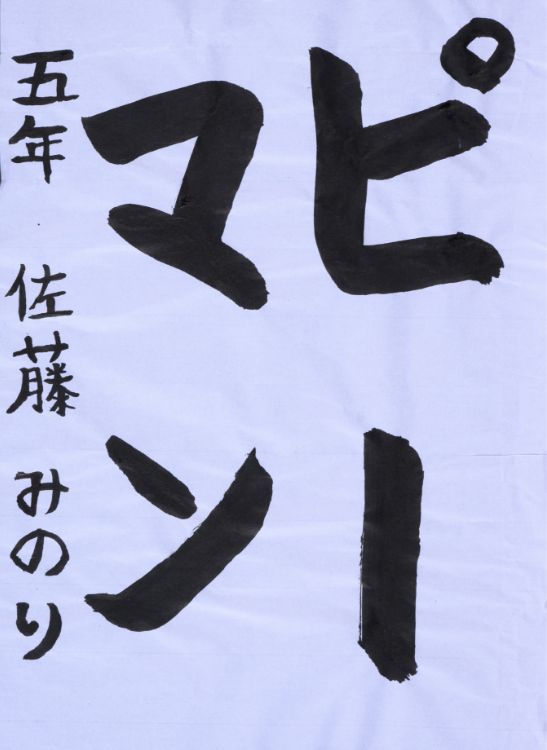 ピー
マン
五年 佐藤 みのり